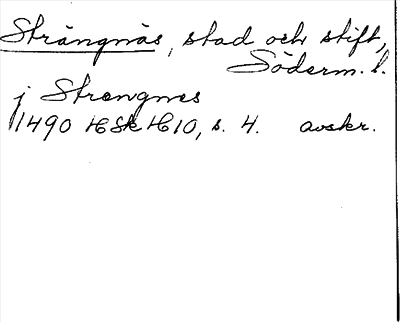 Strängnäs, stad och stift,
Söderm. l.
j Strengnes
1490 HSH H10, s. 4. avskr.